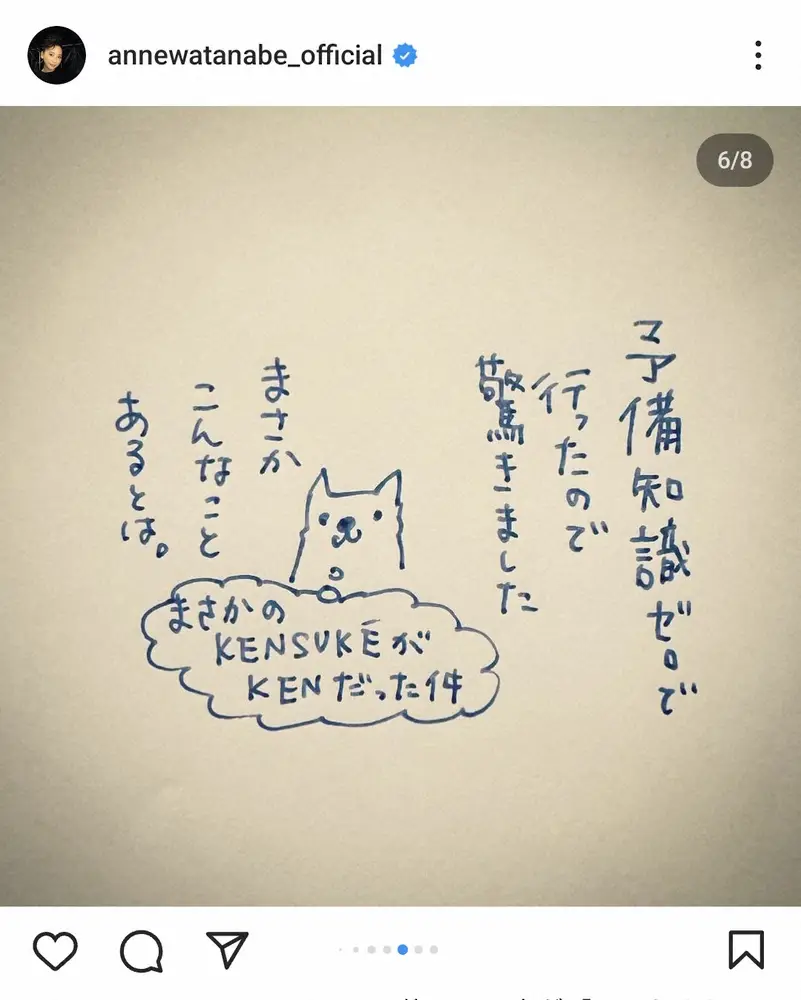 annewatanabe_official
6/8
予備知識ゼロで
行ったので
驚きました
まさか
こんなこと
あるとは。
まさかの
KENSUKÉが
KENだった件